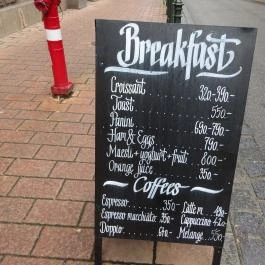 Breakfast
Croissant 320.-390.-
Toast 550.-
Panini 690.-790.-
Ham & Eggs 790.-
Muesli + yoghurt + fruit 800.-
Orange juice 350.-
Coffees
Espresso 350.- Latte m. 480.-
Espresso macchiato 350.- Cappuccino 420.-
Doppio Melange 550.-